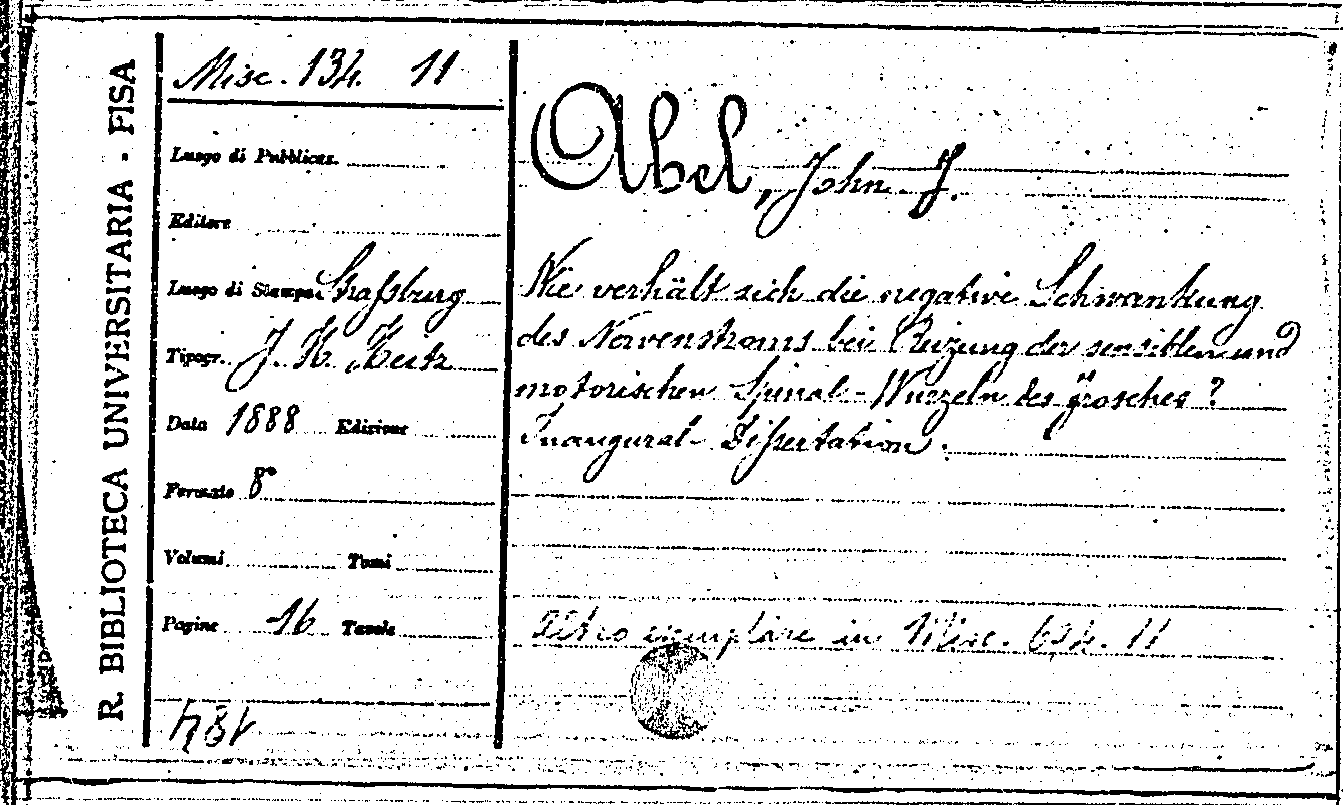 R. BIBLIOTECA UNIVERSITARIA - PISA
Misc. 134. 11
Luogo di Pubblicaz.
Editore
Luogo di Stampa Straßburg
Tipogr. J. H. Heitz
Data 1888 Edizione
Formato 8°
Volumi Tomi
Pagine 16 Tavole
Abel, John J.
Wie verhält sich die negative Schwankung
des Nervenstroms bei Reizung der sensiblen und
motorischen Spinal-Wurzeln des Frosches?
Inaugural-Dissertation.
Altro esemplare in Misc. 634. 11